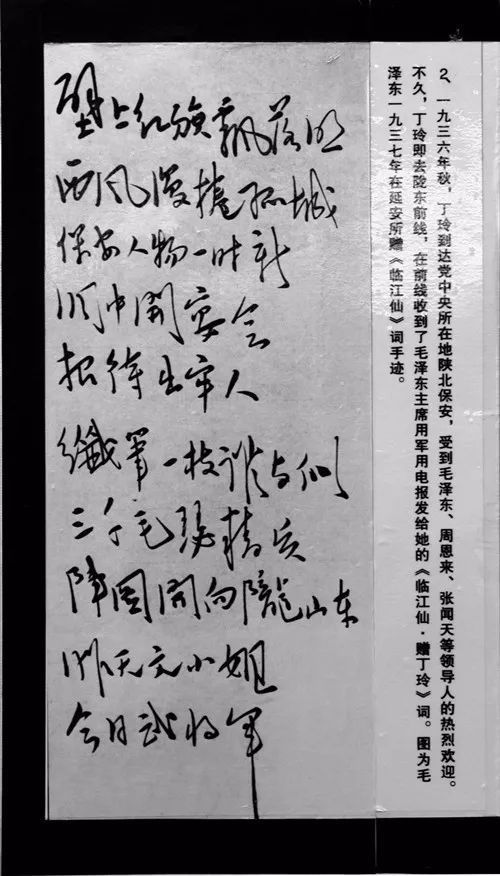 壁上红旗飘落照
西风漫捲孤城
保安人物一时新
洞中開宴会
招待出牢人
纖筆一枝誰与似
三千毛瑟精兵
陣图開向隴山东
昨天文小姐
今日武将军
2、一九三六年秋，丁玲到达党中央所在地陕北保安，受到毛泽东、周恩来、张闻天等领导人的热烈欢迎。
不久，丁玲即去陇东前线，在前线收到了毛泽东主席用军用电报发给她的《临江仙·赠丁玲》词。图为毛
泽东一九三七年在延安所赠《临江仙》词手迹。